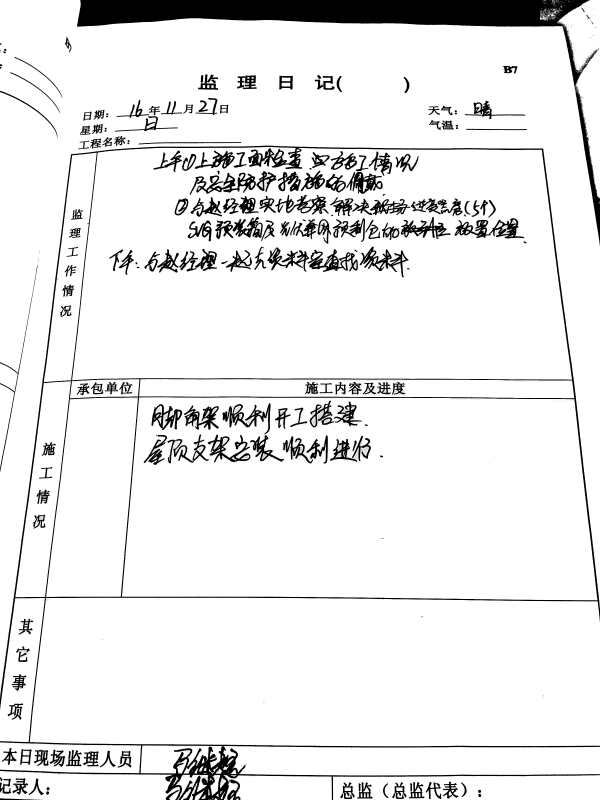 B7
监 理 日 记( )
日期: 16 年 11 月 27 日
天气: 晴
星期: 日
气温:
工程名称:
监理工作情况
上午①上施工面检查 施工情况
及安全防护措施的佩戴
②与赵经理实地考察,解决 高度(5个)
SVG预装箱及 的 放置位置
下午:与赵经理一起去资料室查找资料.
承包单位
施工内容及进度
施工情况
脚手架顺利开工搭建.
屋顶支架安装顺利进行.
其它事项
本日现场监理人员
记录人:
总监(总监代表):